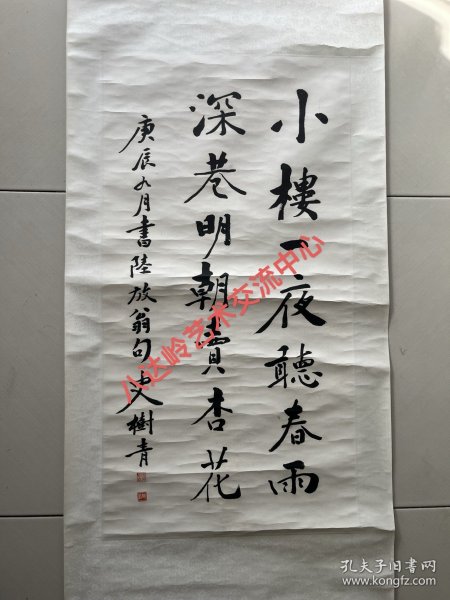 小樓一夜聽春雨
深巷明朝賣杏花
庚辰九月書陸放翁句史樹青
八达岭艺术交流中心
孔夫子旧书网
www.kongfz.com